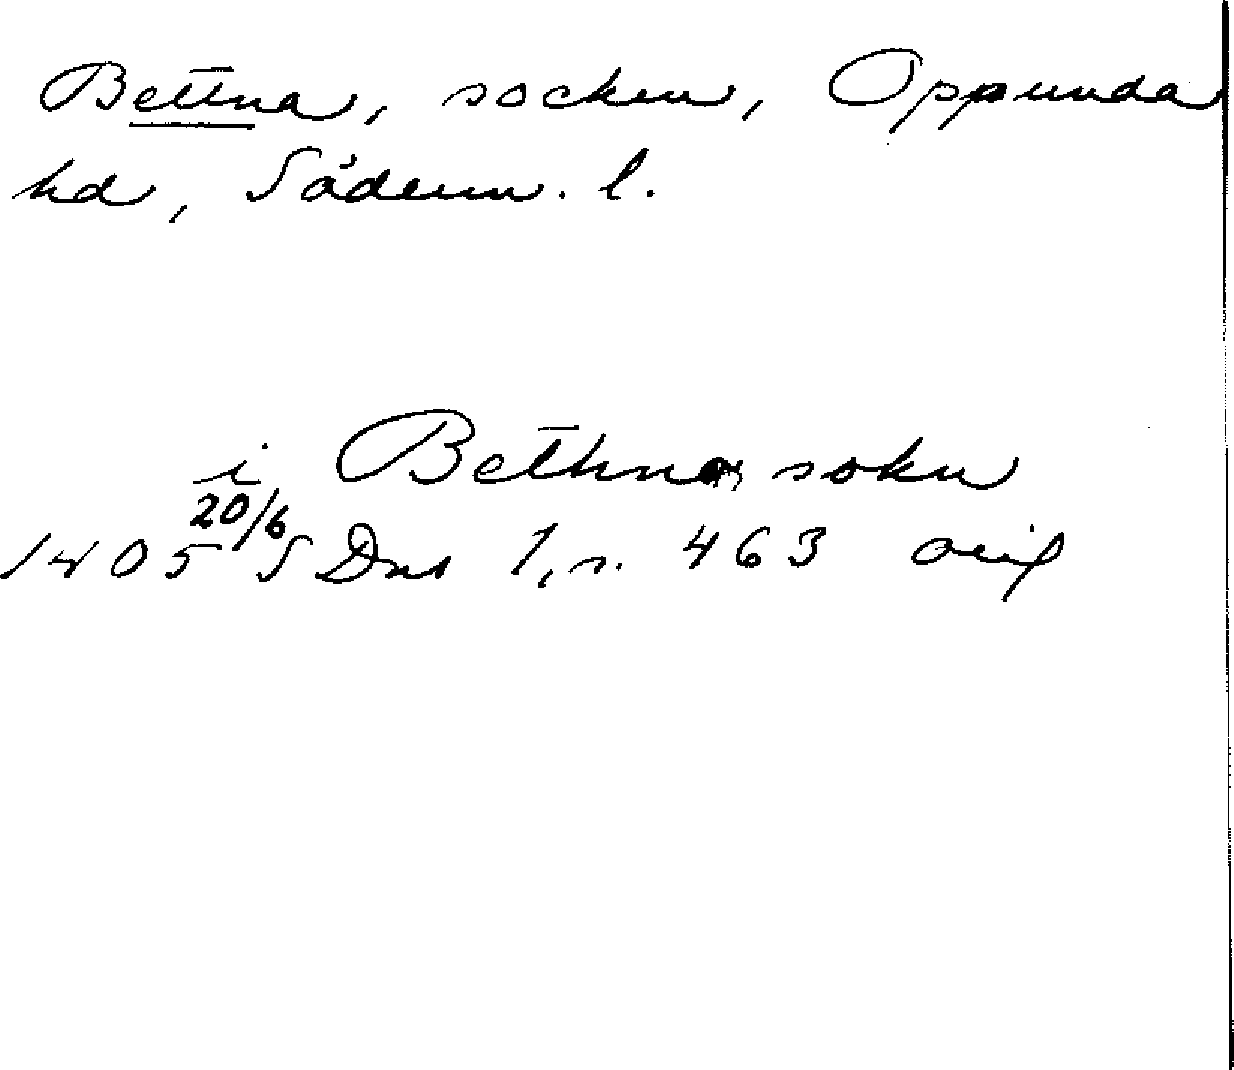 Bettna, socken, Oppunda
hd, Söderm. l.
i Bethna sokn
20/6
1405 SDns 1, s. 463 orig